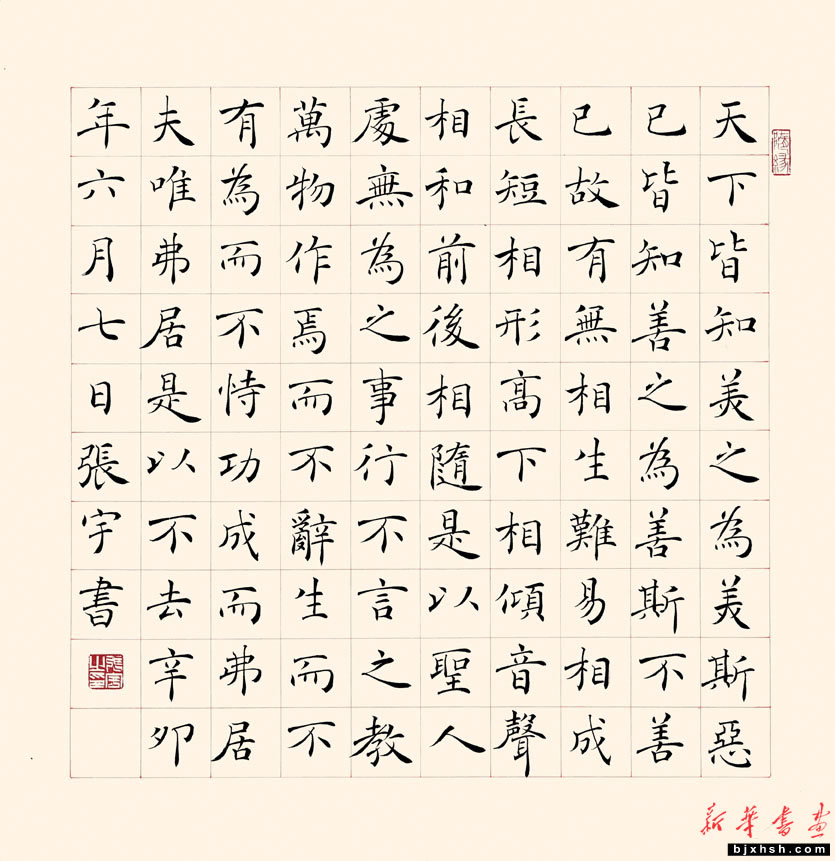 天下皆知美之為美斯惡
已皆知善之為善斯不善
已故有無相生難易相成
長短相形高下相傾音聲
相和前後相隨是以聖人
處無為之事行不言之教
萬物作焉而不辭生而不
有為而不恃功成而弗居
夫唯弗居是以不去辛卯
年六月七日張宇書
新華書畫
bjxhsh.com